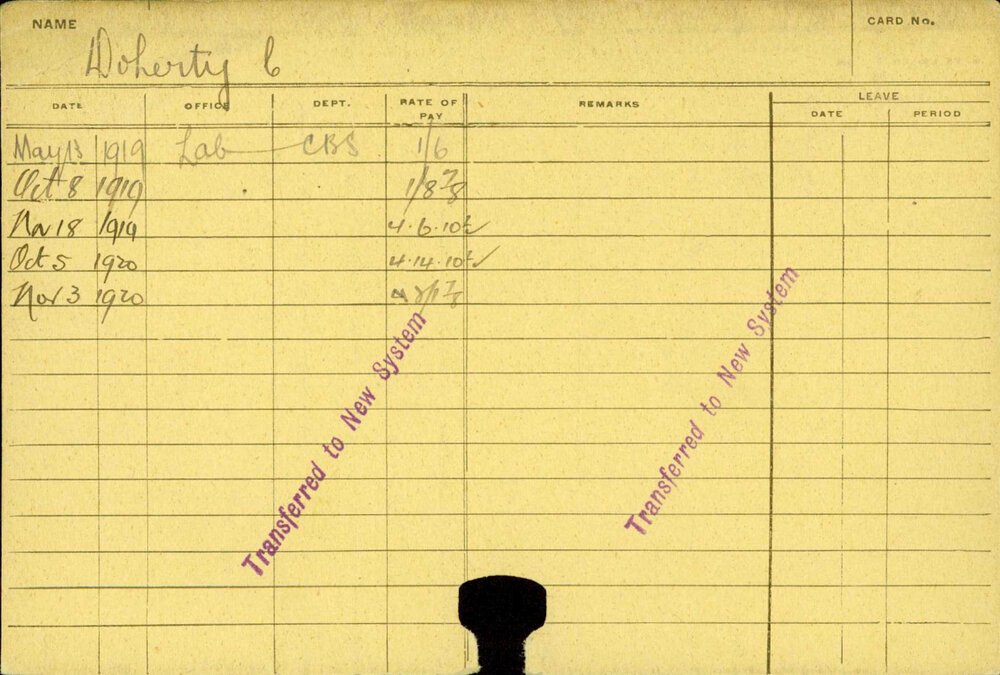 NAME
CARD No.
Doherty C
DATE OFFICE DEPT. RATE OF PAY REMARKS LEAVE
DATE PERIOD
May 13 1919 Lab CBS 1/6
Oct 8 1919 1/8 7/8
Nov 18 1919 4.6.10½ ✓
Oct 5 1920 4.14.10½ ✓
Nov 3 1920 2/1 7/8
Transferred to New System
Transferred to New System